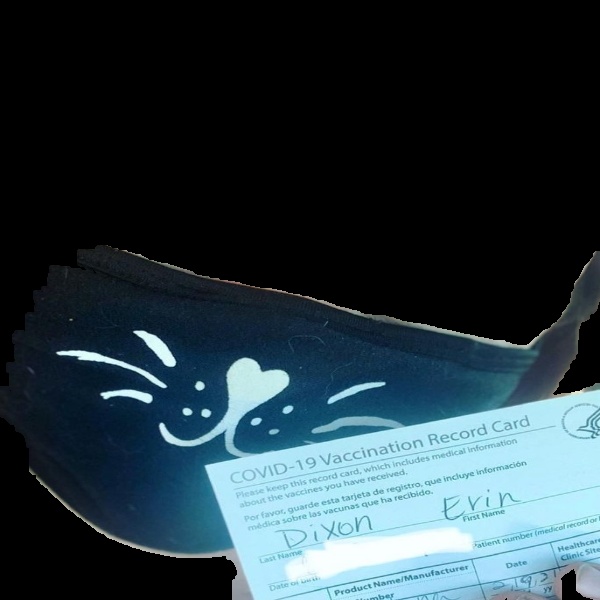 COVID-19 Vaccination Record Card
Please keep this record card, which includes medical information
about the vaccines you have received.
Por favor, guarde esta tarjeta de registro, que incluye información
médica sobre las vacunas que ha recibido.
Dixon Erin
Last Name First Name
Date of Birth Patient number (medical record or
Product Name/Manufacturer Date Healthcare
Number Clinic Site